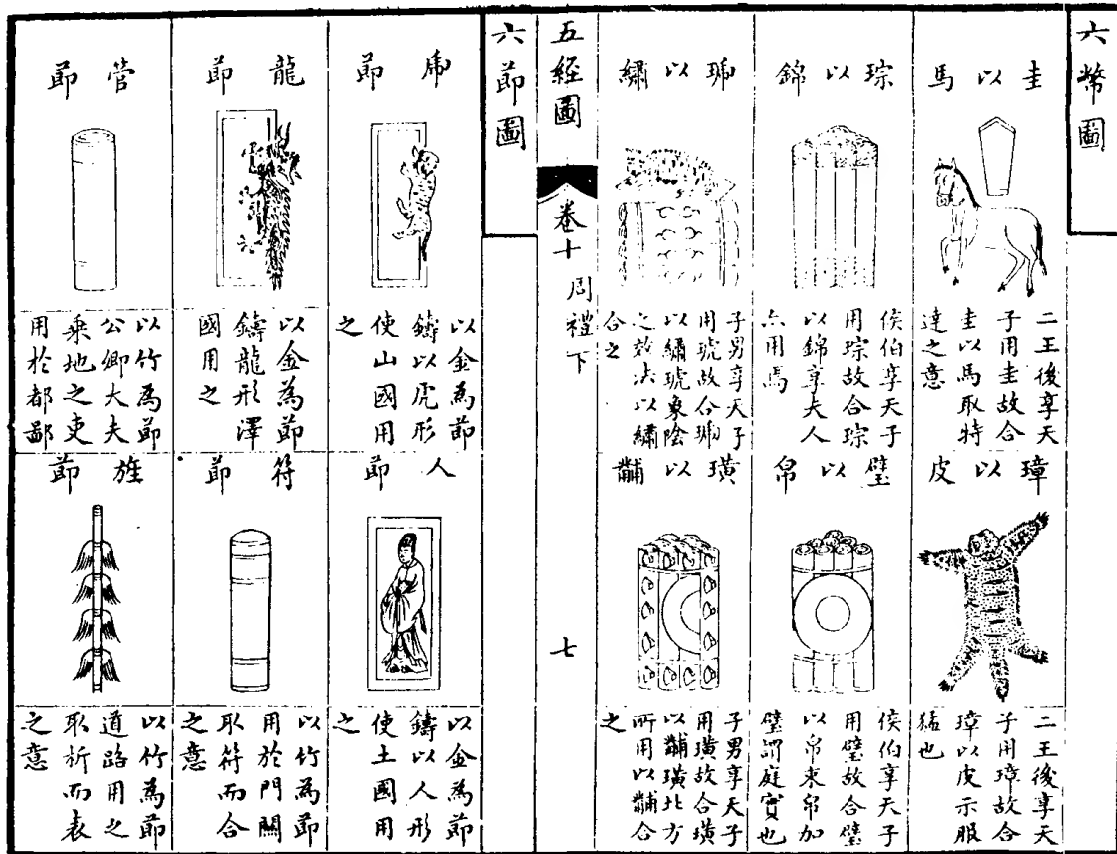 六幣圖
圭以馬
二王後享天
子用圭故合
圭以馬取特
達之意
琮以錦
侯伯享天子
用琮故合琮
以錦享夫人
亦用焉
琥以繡
子男享天子
用琥故合琥
以繡琥象陰
之效法以繡
合之
璋以皮
二王後享天
子用璋故合
璋以皮示服
猛也
璧以帛
侯伯享天子
用璧故合璧
以帛束帛加
璧謂庭實也
璜以黼
子男享天子
用璜故合璜
以黼璜北方
所用以黼合
之
五經圖
卷十周禮下
七
六節圖
虎節
以金為節
鑄以虎形
使山國用
之
龍節
以金為節
鑄龍形澤
國用之
管節
以竹為節
公卿大夫
乘地之吏
用於都鄙
人節
以金為節
鑄以人形
使土國用
之
符節
以竹為節
用於門關
取符而合
之意
旌節
以竹為節
道路用之
取析而表
之意